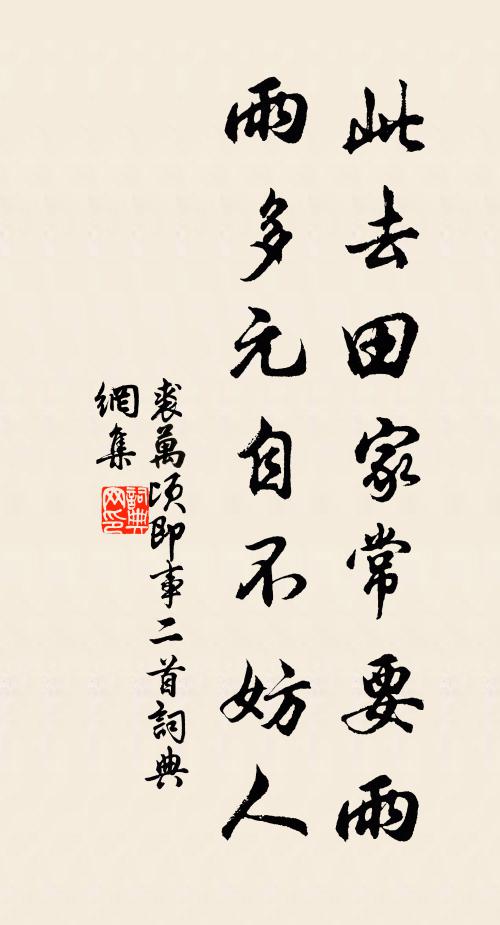 此去田家常要雨
雨多元自不妨人
裘萬頃即事二首詞典
網集
詞典
网印